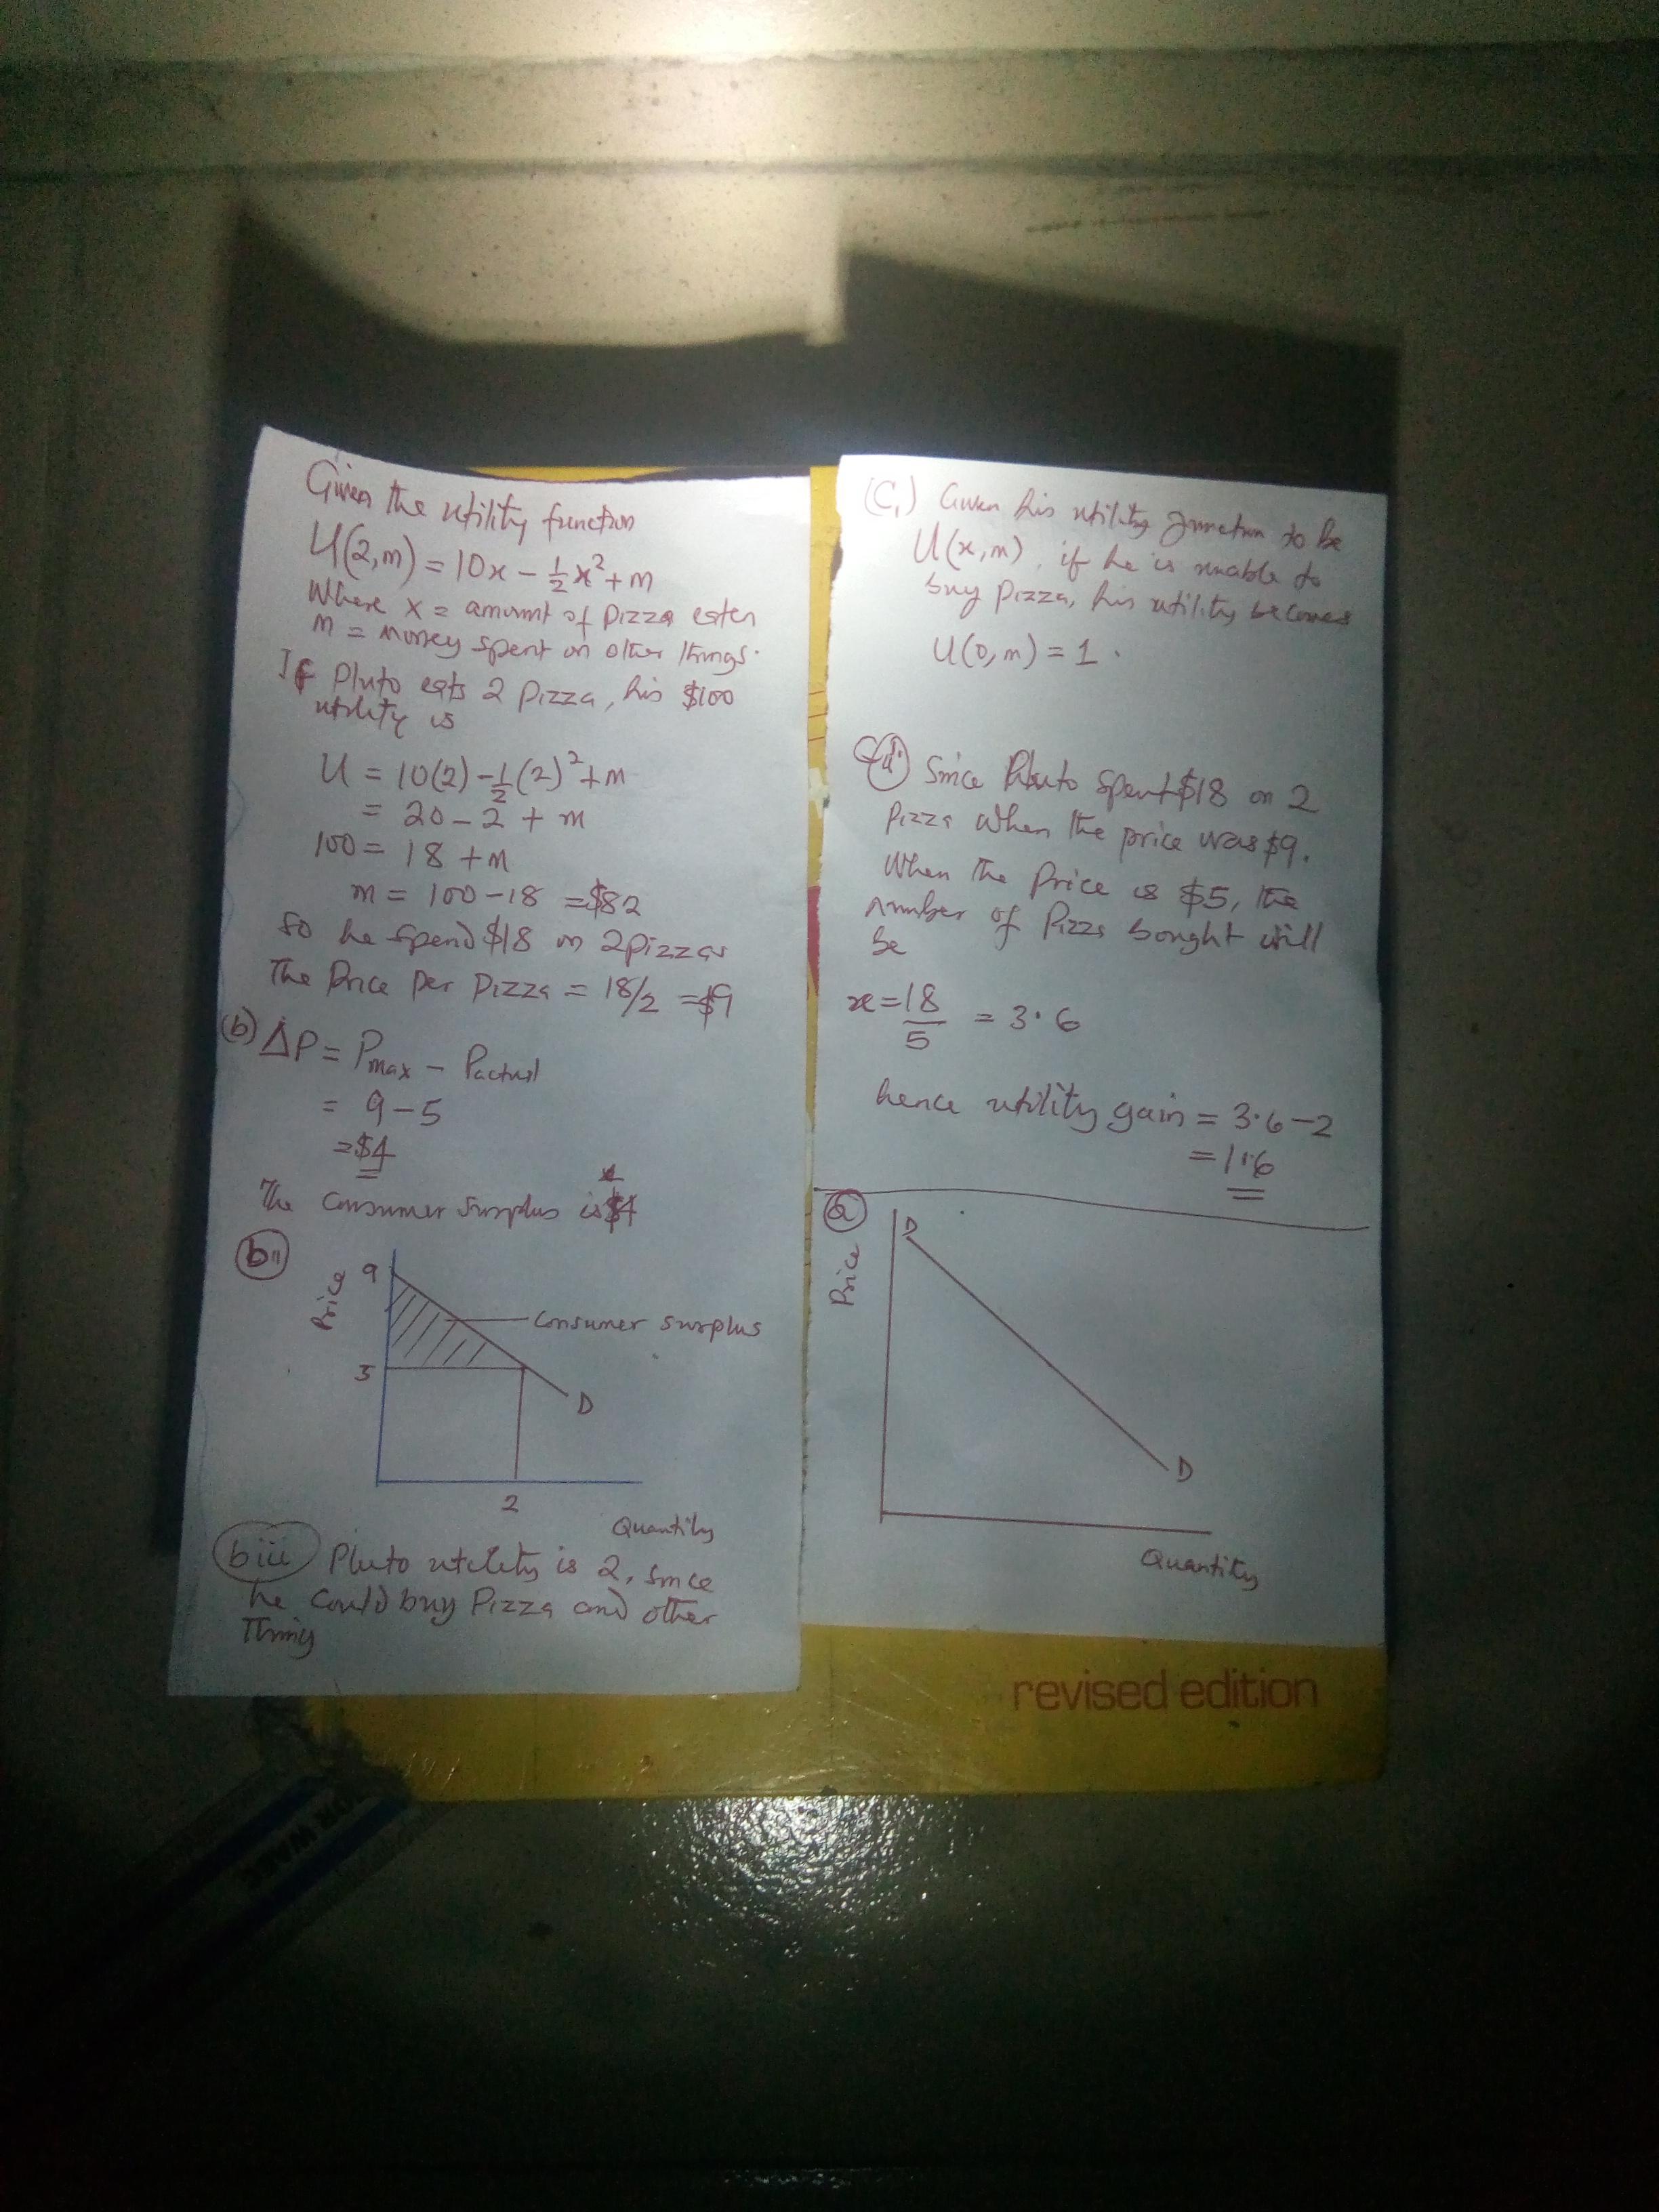 Given the utility function
U(2,m) = 10x - 1/2 x² + m
Where x = amount of pizza eaten
m = money spent on other things.
If Pluto eats 2 pizza, his $100
utility is
U = 10(2) - 1/2 (2)² + m
= 20 - 2 + m
100 = 18 + m
m = 100 - 18 = $82
so he spend $18 on 2 pizzas
The Price per pizza = 18/2 = $9
(b) ΔP = Pmax - Pactual
= 9 - 5
= $4
The Consumer surplus is $4
bii
Price
9
Consumer surplus
5
D
2
Quantity
biii Pluto utility is 2, since
he could buy Pizza and other
Thing
(C,) Given his utility function to be
U(x,m), if he is unable to
buy pizza, his utility becomes
U(0,m) = 1.
d Since Pluto spent $18 on 2
pizza when the price was $9.
When the price is $5, the
number of Pizza bought will
be
x = 18/5 = 3.6
hence utility gain = 3.6 - 2
= 1.6
a
Price
D
D
Quantity
revised edition